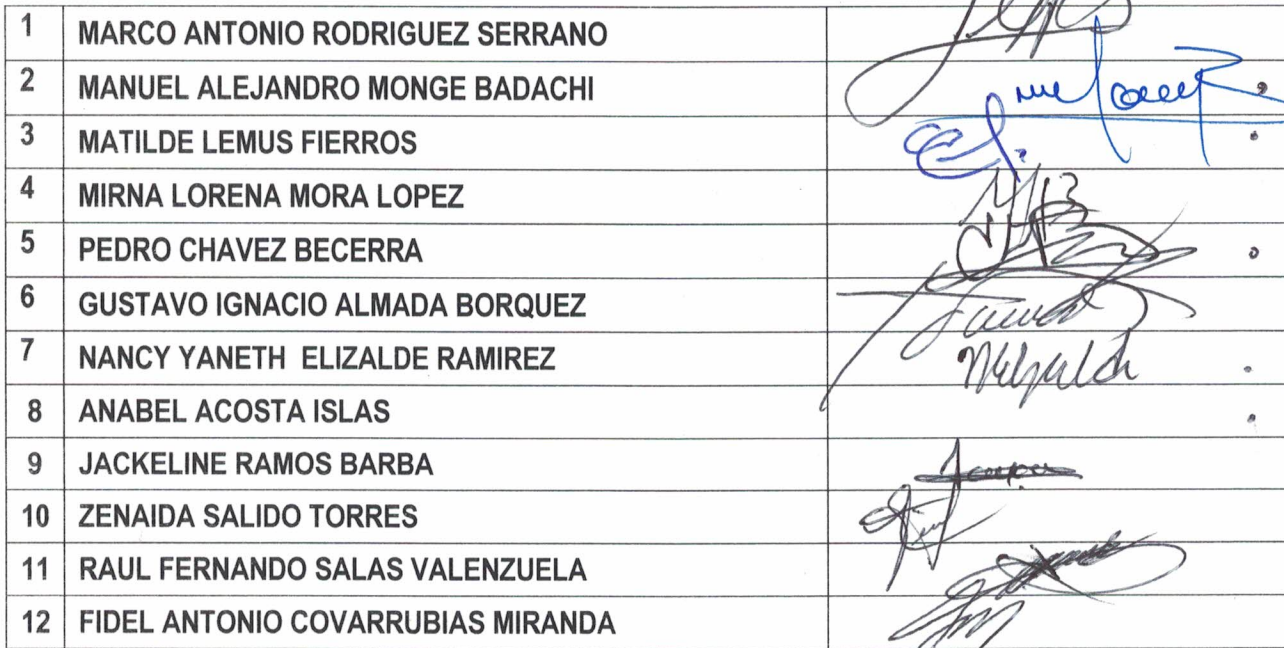 1 MARCO ANTONIO RODRIGUEZ SERRANO
2 MANUEL ALEJANDRO MONGE BADACHI
3 MATILDE LEMUS FIERROS
4 MIRNA LORENA MORA LOPEZ
5 PEDRO CHAVEZ BECERRA
6 GUSTAVO IGNACIO ALMADA BORQUEZ
7 NANCY YANETH ELIZALDE RAMIREZ
8 ANABEL ACOSTA ISLAS
9 JACKELINE RAMOS BARBA
10 ZENAIDA SALIDO TORRES
11 RAUL FERNANDO SALAS VALENZUELA
12 FIDEL ANTONIO COVARRUBIAS MIRANDA